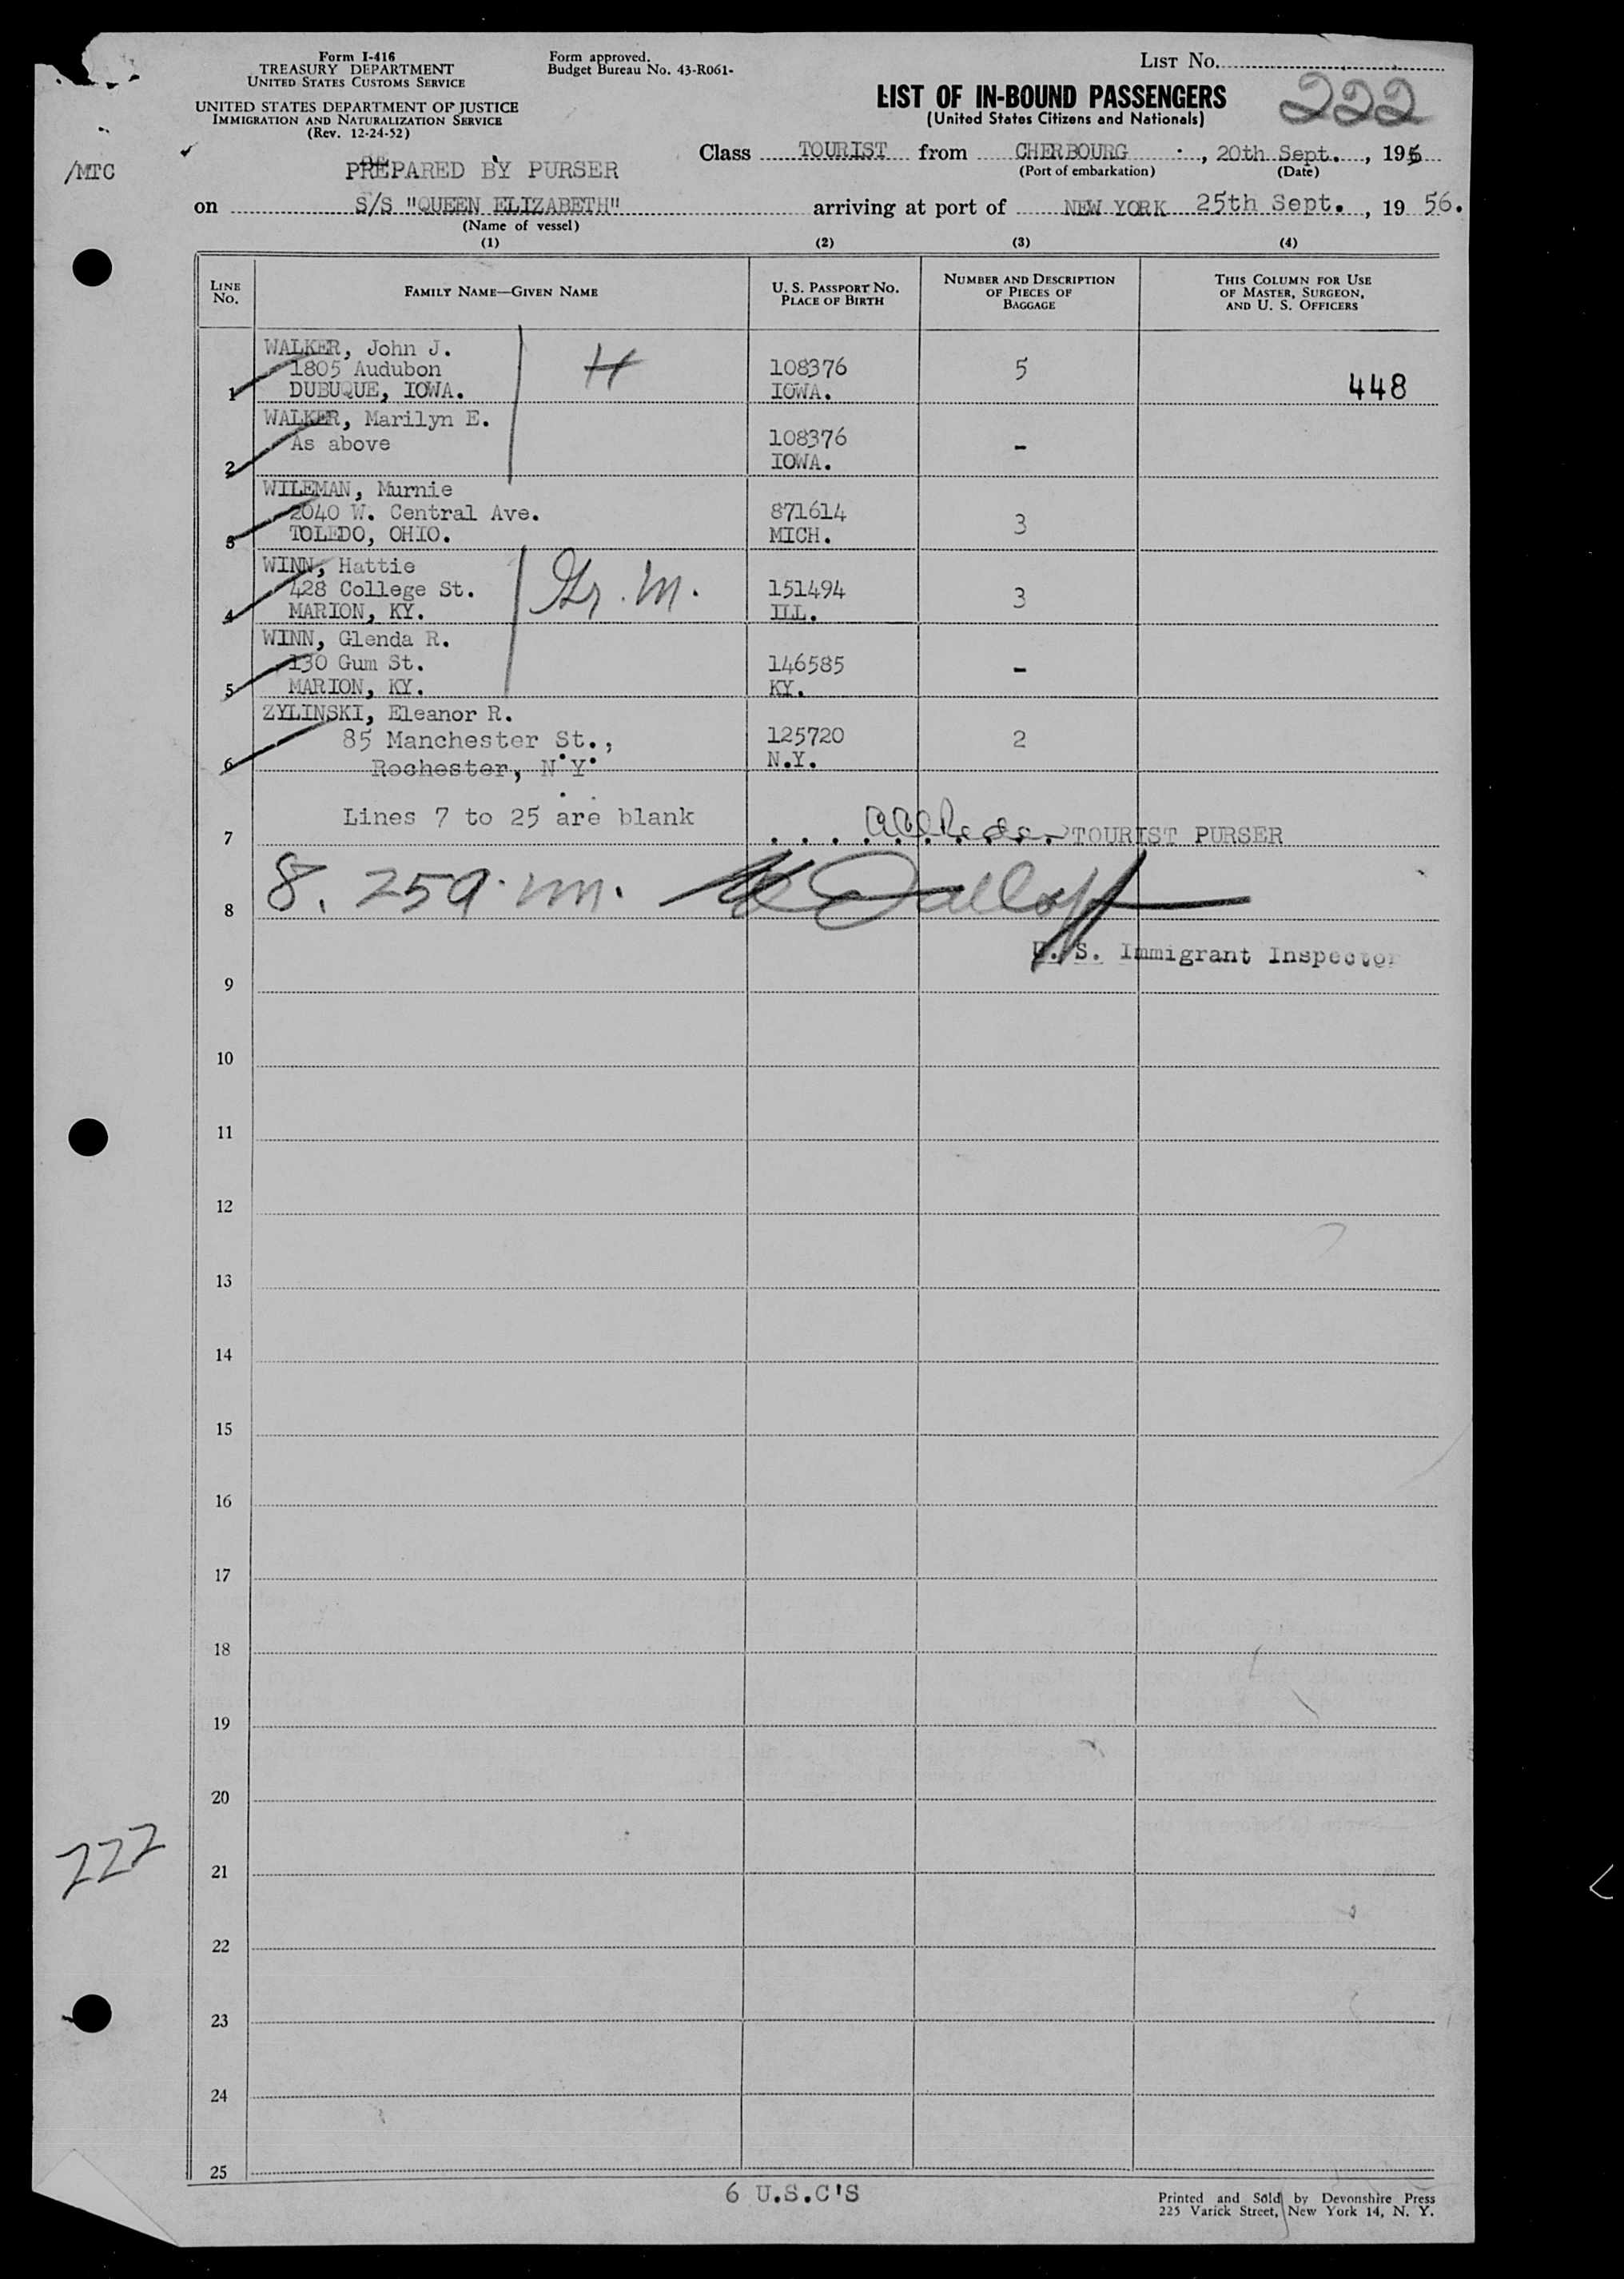 Form I-416
TREASURY DEPARTMENT
UNITED STATES CUSTOMS SERVICE
UNITED STATES DEPARTMENT OF JUSTICE
IMMIGRATION AND NATURALIZATION SERVICE
(Rev. 12-24-52)
Form approved.
Budget Bureau No. 43-R061-
LIST No.
222
LIST OF IN-BOUND PASSENGERS
(United States Citizens and Nationals)
/MTC
PREPARED BY PURSER
Class TOURIST from CHERBOURG, 20th Sept., 195
(Port of embarkation) (Date)
on S/S "QUEEN ELIZABETH" arriving at port of NEW YORK 25th Sept., 19 56.
(Name of vessel)
(1) (2) (3) (4)
LINE No. FAMILY NAME—GIVEN NAME U. S. PASSPORT NO. PLACE OF BIRTH NUMBER AND DESCRIPTION OF PIECES OF BAGGAGE THIS COLUMN FOR USE OF MASTER, SURGEON, AND U. S. OFFICERS
WALKER, John J.
1805 Audubon H 108376 5
1 DUBUQUE, IOWA. IOWA. 448
WALKER, Marilyn E.
As above 108376 -
2 IOWA.
WILEMAN, Murnie
2040 W. Central Ave. 871614 3
3 TOLEDO, OHIO. MICH.
WINN, Hattie
428 College St. 151494 3
4 MARION, KY. ILL.
WINN, Glenda R.
130 Gum St. 146585 -
5 MARION, KY. KY.
ZYLINSKI, Eleanor R.
85 Manchester St., 125720 2
6 Rochester, N.Y. N.Y.
Lines 7 to 25 are blank
7 TOURIST PURSER
8
U. S. Immigrant Inspector
9
10
11
12
13
14
15
16
17
18
19
20
222
21
22
23
24
25
6 U.S.C'S
Printed and Sold by Devonshire Press
225 Varick Street, New York 14, N. Y.